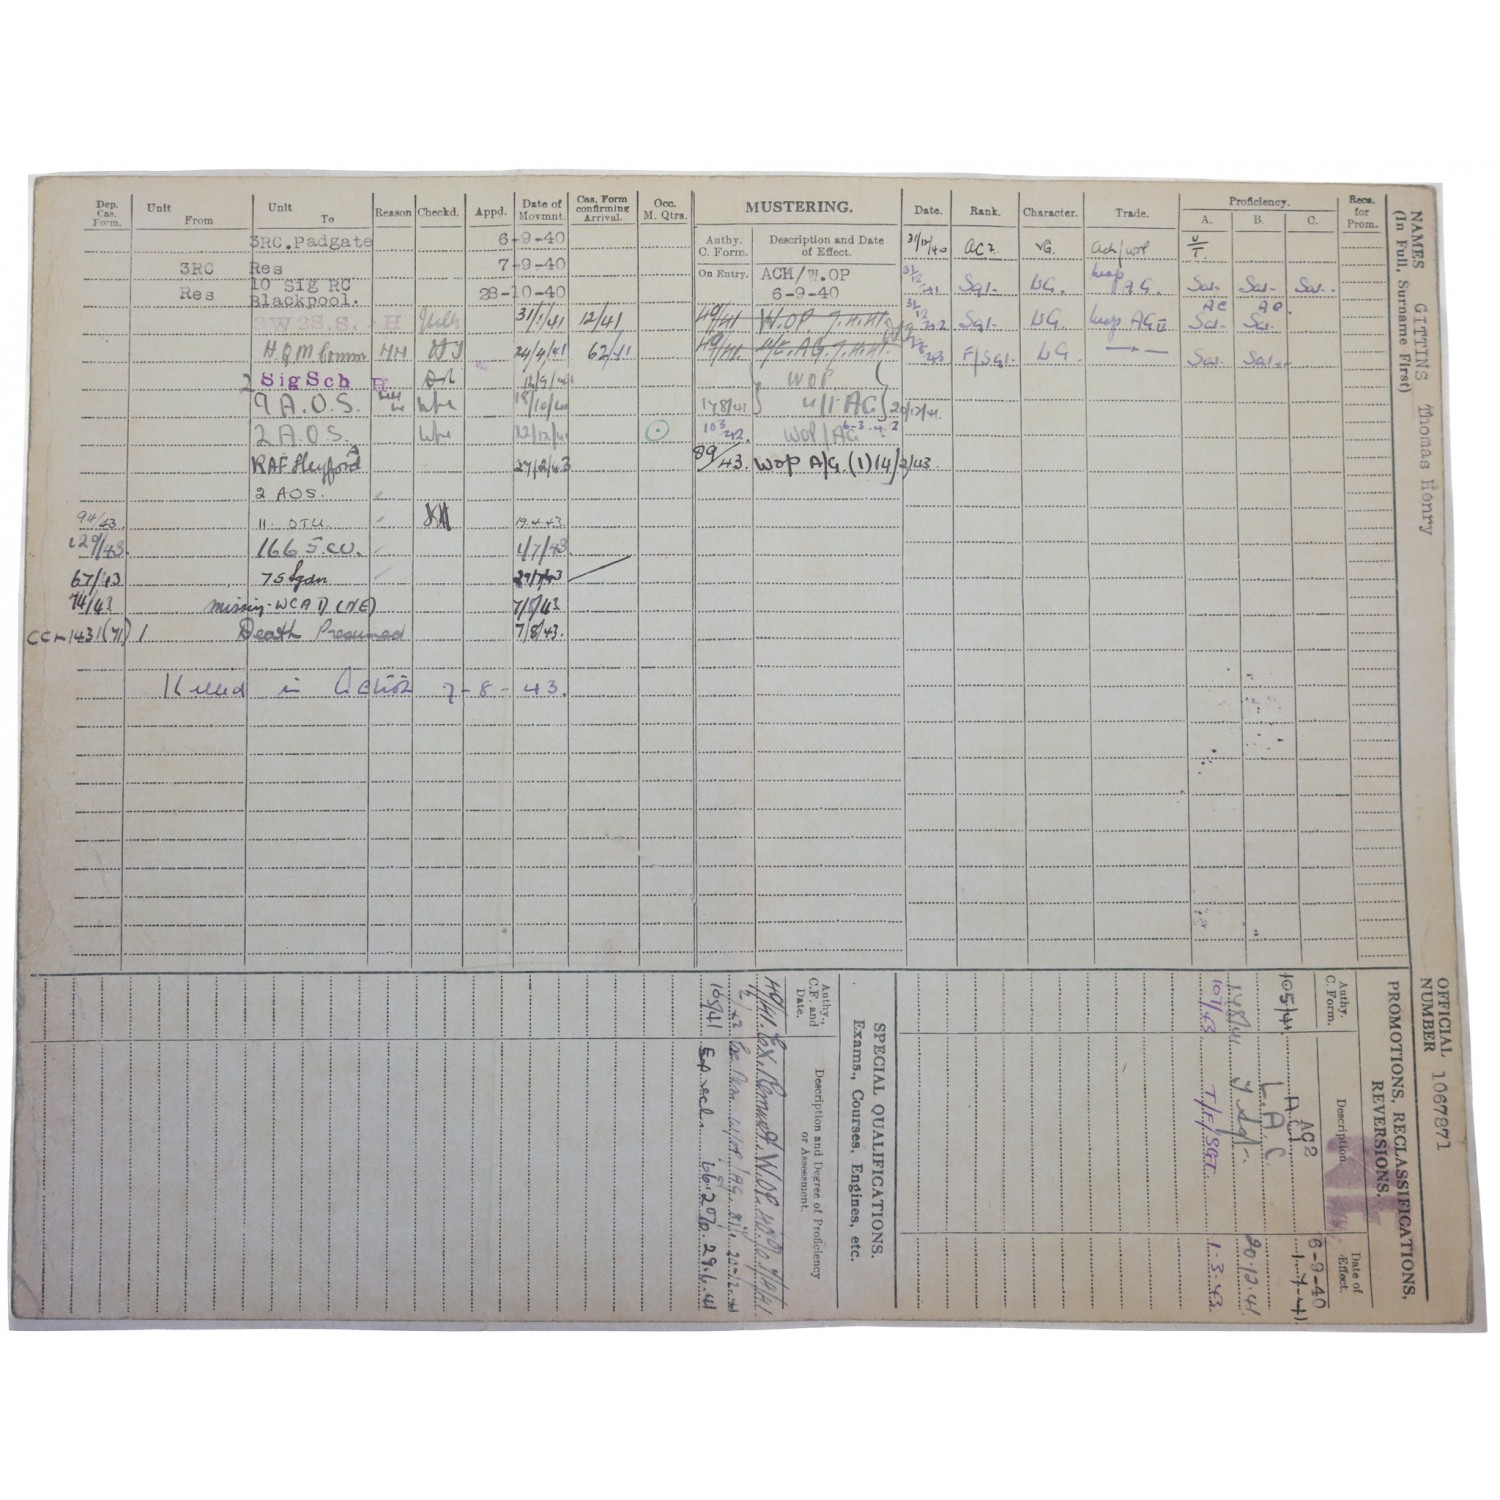 Dep. Cas. Form.
Unit From
Unit To
Reason
Checkd.
Appd.
Date of Movmnt.
Cas. Form confirming Arrival.
Occ. M. Qtrs.
3RC.Padgate 6-9-40
3RC Res 7-9-40
Res 10 Sig RC Blackpool. 28-10-40
2W2S.S. H 31/1/41 12/41
H.Q.M Comm HH 24/4/41
2 SigSch H
9 A.O.S. 18/10/41
2 A.O.S. 22/12/41
RAF Heyford 27/2/43
2 AOS.
94/43. 11. OTU. 19.4.43.
129/43. 166 S.CU. 1/7/43
67/43 75 Sqdn
74/43 missing 7/8/43
1431(71) Death Presumed 7/8/43.
Killed in Action 7-8-43.
MUSTERING.
Authy. C. Form.
Description and Date of Effect.
On Entry. ACH/W.OP 6-9-40
49/41 W.OP
49/41. U/T. AG.
178/41 WOP U/T AG 20/12/41.
103/42. WOP/AG 6-3-42
89/43. WOP A/G. (1) 14/2/43.
Date.
Rank.
Character.
Trade.
Proficiency.
A. B. C.
Recs. for Prom.
31/12/40 AC2 VG. Ach/WOP U/T
Sgt. VG. Wop AG. Sat. Sat. Sat.
Sgt. VG. Wop AG II Sat. Sat.
F/Sgt. VG. Sat. Sat.
NAMES GITTINS Thomas Henry
(In Full, Surname First)
OFFICIAL NUMBER 1067871
PROMOTIONS, RECLASSIFICATIONS, REVERSIONS.
Authy. C. Form.
Description
Date of Effect.
AC2 6-9-40
105/41 A.C.1 1-7-41
L.A.C.
178/41 T. Sgt. 20.12.41.
107/43 T/F/SGT. 1.3.43.
SPECIAL QUALIFICATIONS.
Exams., Courses, Engines, etc.
Authy., C.F. and Date.
Description and Degree of Proficiency or Assessment.
49/41. Ex. Remust. W.OP.
WOP/AG. 20-12-41
105/41 66.2% 29.6.41